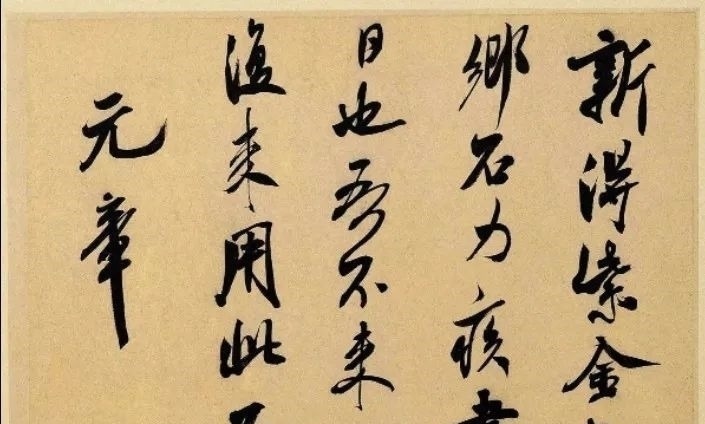 新得紫金
鄉石力疾書
日也吾不来
復来用此
元章